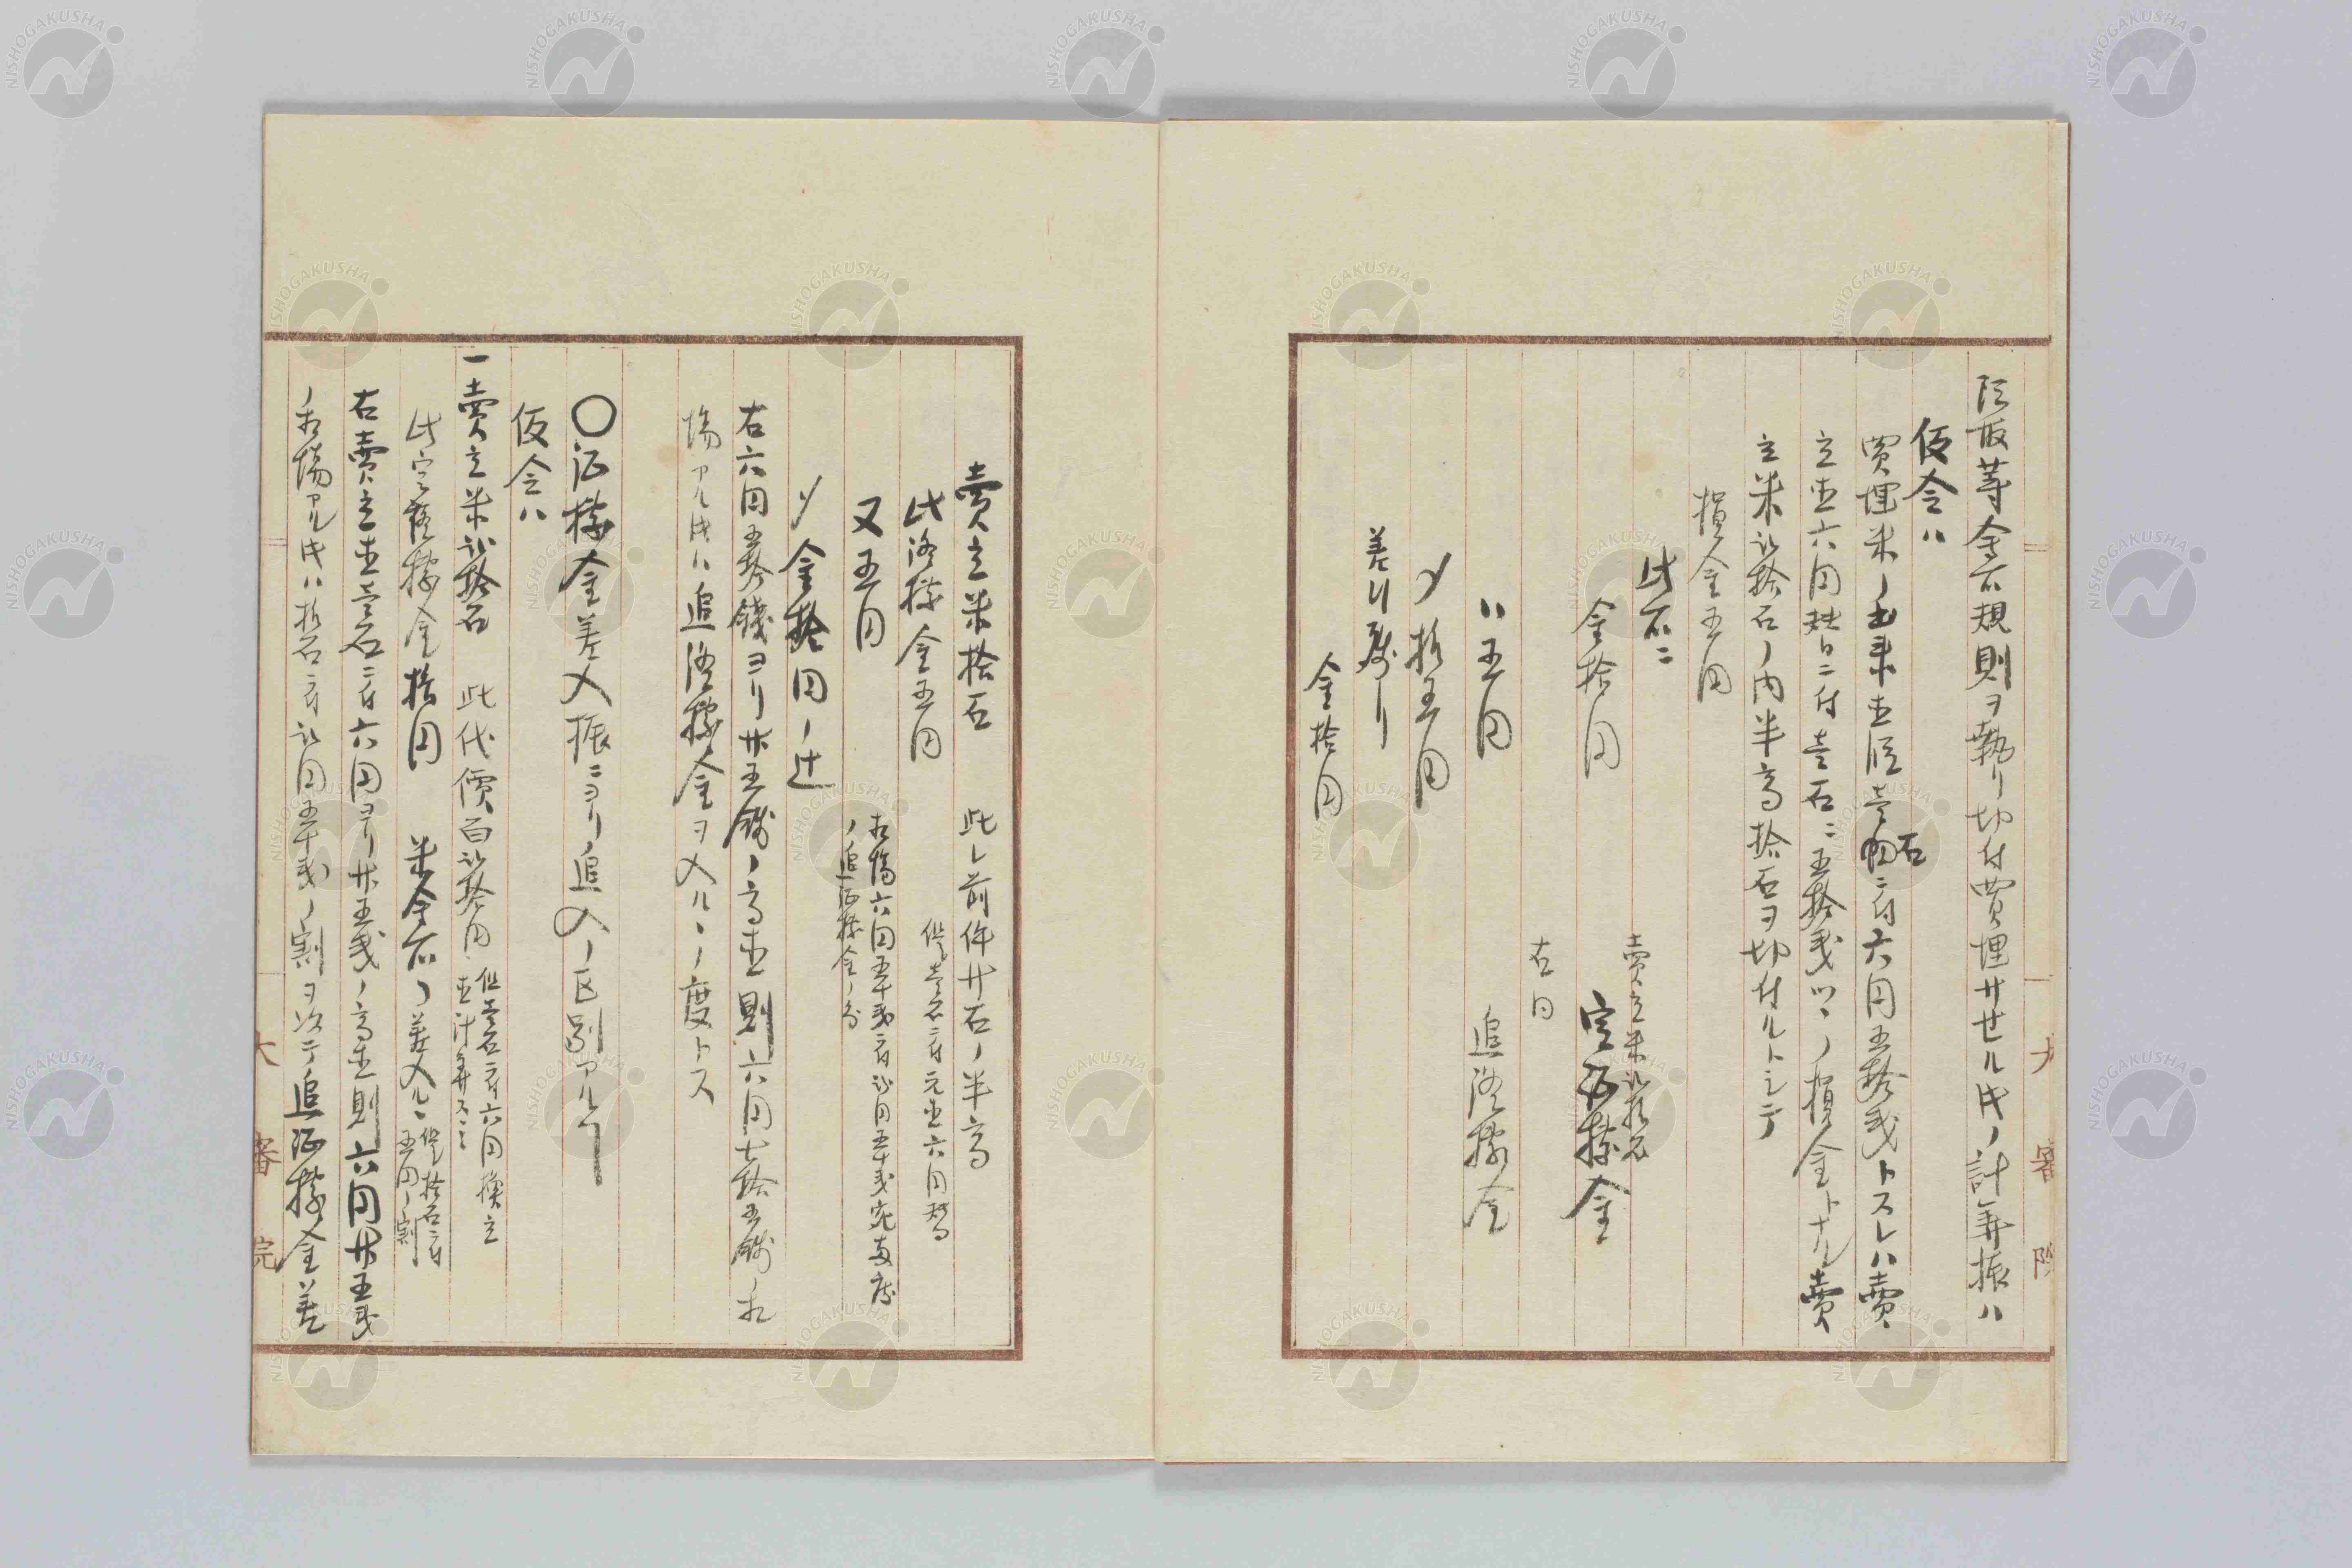 大審院
仮令ハ
買埋米ノ出来直段壱石ニ付六円五拾戋トスレハ賣
立直六円替ニ付壱石ニ五拾戋ツヽノ損金トナル賣
立米弐拾石ノ内半高拾石ヲ切付ルトシテ
損金五円
此石ニ
賣立米弐拾石
金拾円 定証拠金
右同
〃五円 追証拠金
〆拾五円
差引残リ
金拾円
賣立米拾石 此レ前件廿石ノ半高
此証拠金五円 但壱石ニ付元直六円替
又五円
ノ追証拠金ノ分
〆金拾円ノ辻
右六円五拾錢ヨリ廿五錢ノ高直則六円七拾五錢ノ相
場アル時ハ追証拠金ヲ入ルヽノ度トス
〇証拠金差入振ニヨリ追入ノ区別アルヿ
仮令ハ
一賣立米弐拾石 此代價百弐拾円
但壱石ニ付六円換立
直計算スコミ
此定証拠金拾円
但拾石ニ付
五円ノ割
右賣立直壱石ニ付六円ヨリ廿五戋ノ高直則六円廿五戋
ノ相場アル時ハ拾石ニ付弐円五十戋ノ割ヲ以テ追証拠金差
大審院
NISHOGAKUSHA